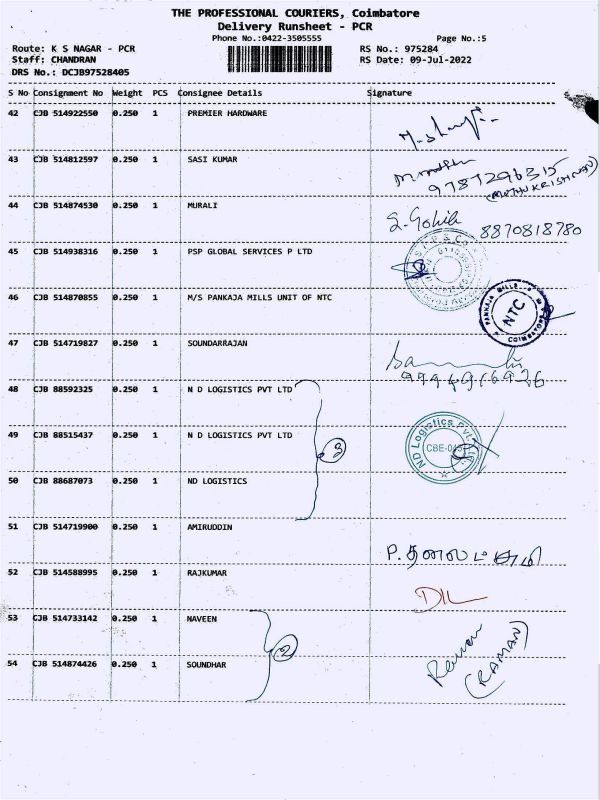 THE PROFESSIONAL COURIERS, Coimbatore
Delivery Runsheet - PCR
Phone No.:0422-3505555 Page No.:5
Route: K S NAGAR - PCR RS No.: 975284
Staff: CHANDRAN RS Date: 09-Jul-2022
DRS No.: DCJB97528405
S No Consignment No Weight PCS Consignee Details Signature
42 CJB 514922550 0.250 1 PREMIER HARDWARE
43 CJB 514812597 0.250 1 SASI KUMAR
9787296315
(MUTHUKRISHNAN)
44 CJB 514874530 0.250 1 MURALI
8870818780
45 CJB 514938316 0.250 1 PSP GLOBAL SERVICES P LTD
46 CJB 514870855 0.250 1 M/S PANKAJA MILLS UNIT OF NTC
PANKAJA MILLS NTC COIMBATORE
47 CJB 514719827 0.250 1 SOUNDARRAJAN
9994916926
48 CJB 88592325 0.250 1 N D LOGISTICS PVT LTD
49 CJB 88515437 0.250 1 N D LOGISTICS PVT LTD
3
ND Logistics Pvt. Ltd.
50 CJB 88687073 0.250 1 ND LOGISTICS
51 CJB 514719900 0.250 1 AMIRUDDIN
52 CJB 514588995 0.250 1 RAJKUMAR
53 CJB 514733142 0.250 1 NAVEEN
2
Raman
(RAMAN)
54 CJB 514874426 0.250 1 SOUNDHAR